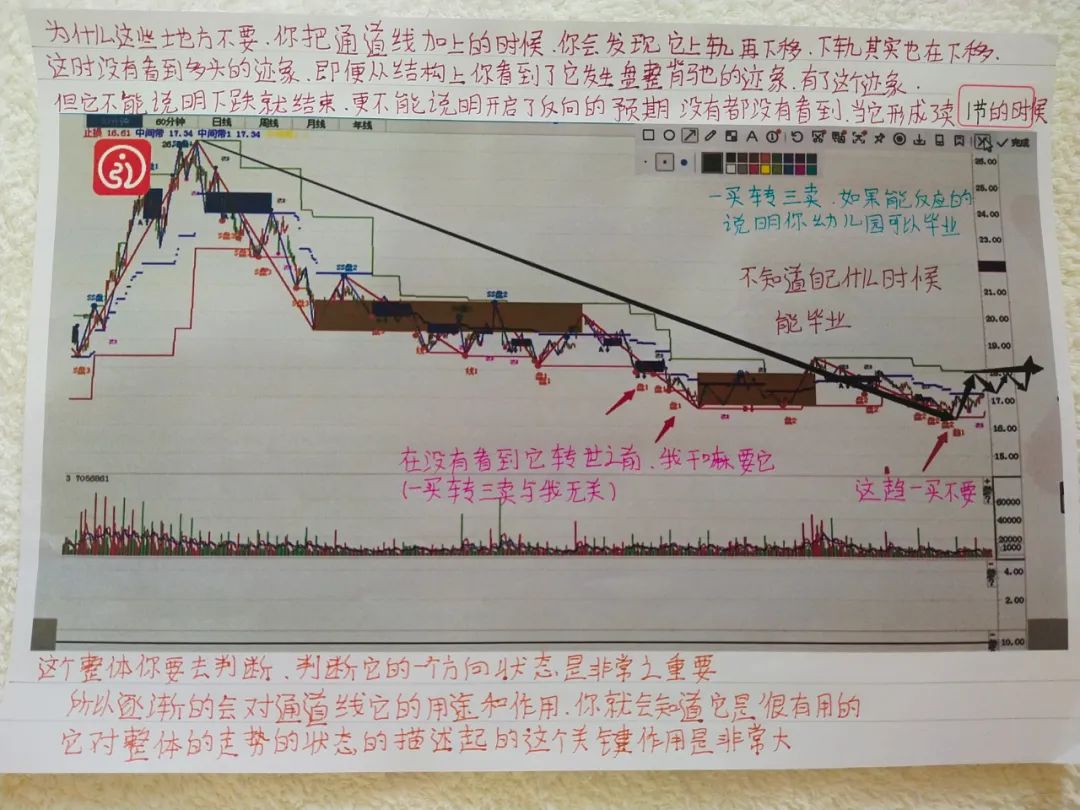 为什么这些地方不要.你把通道线加上的时候.你会发现它上轨再下移.下轨其实也在下移.
这时没有看到多头的迹象.即便从结构上你看到了它发生盘整背弛的迹象.有了这个迹象.
但它不能说明下跌就结束.更不能说明开启了反向的预期 没有都没有看到.当它形成了读1节的时候
60分钟 日线 周线 月线 年线
止损 16.61 中间带 17.34 中间带1 17.34
完成
一买转三卖.如果能反应的
说明你幼儿园可以毕业
不知道自己什么时候
能毕业
SS盘2
SS盘2
25.00
24.00
23.00
21.00
20.00
19.00
17.00
16.00
15.00
在没有看到它转世之前.我干嘛要它
(一买转三卖与我无关)
这趋一买不要
3 7056861
60000
40000
20000
1000
4.00
2.00
10.00
这个整体你要去判断.判断它的一个方向状态是非常之重要
所以逐渐的会对通道线它的用途和作用.你就会知道它是很有用的
它对整体的走势的状态的描述起的这个关键作用是非常大